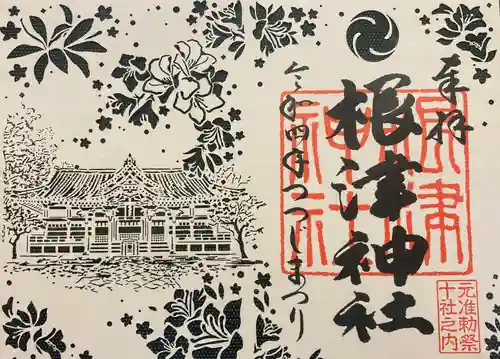 奉拝
根津神社
令和四年つつじまつり
根津神社
元准勅祭
十社之内